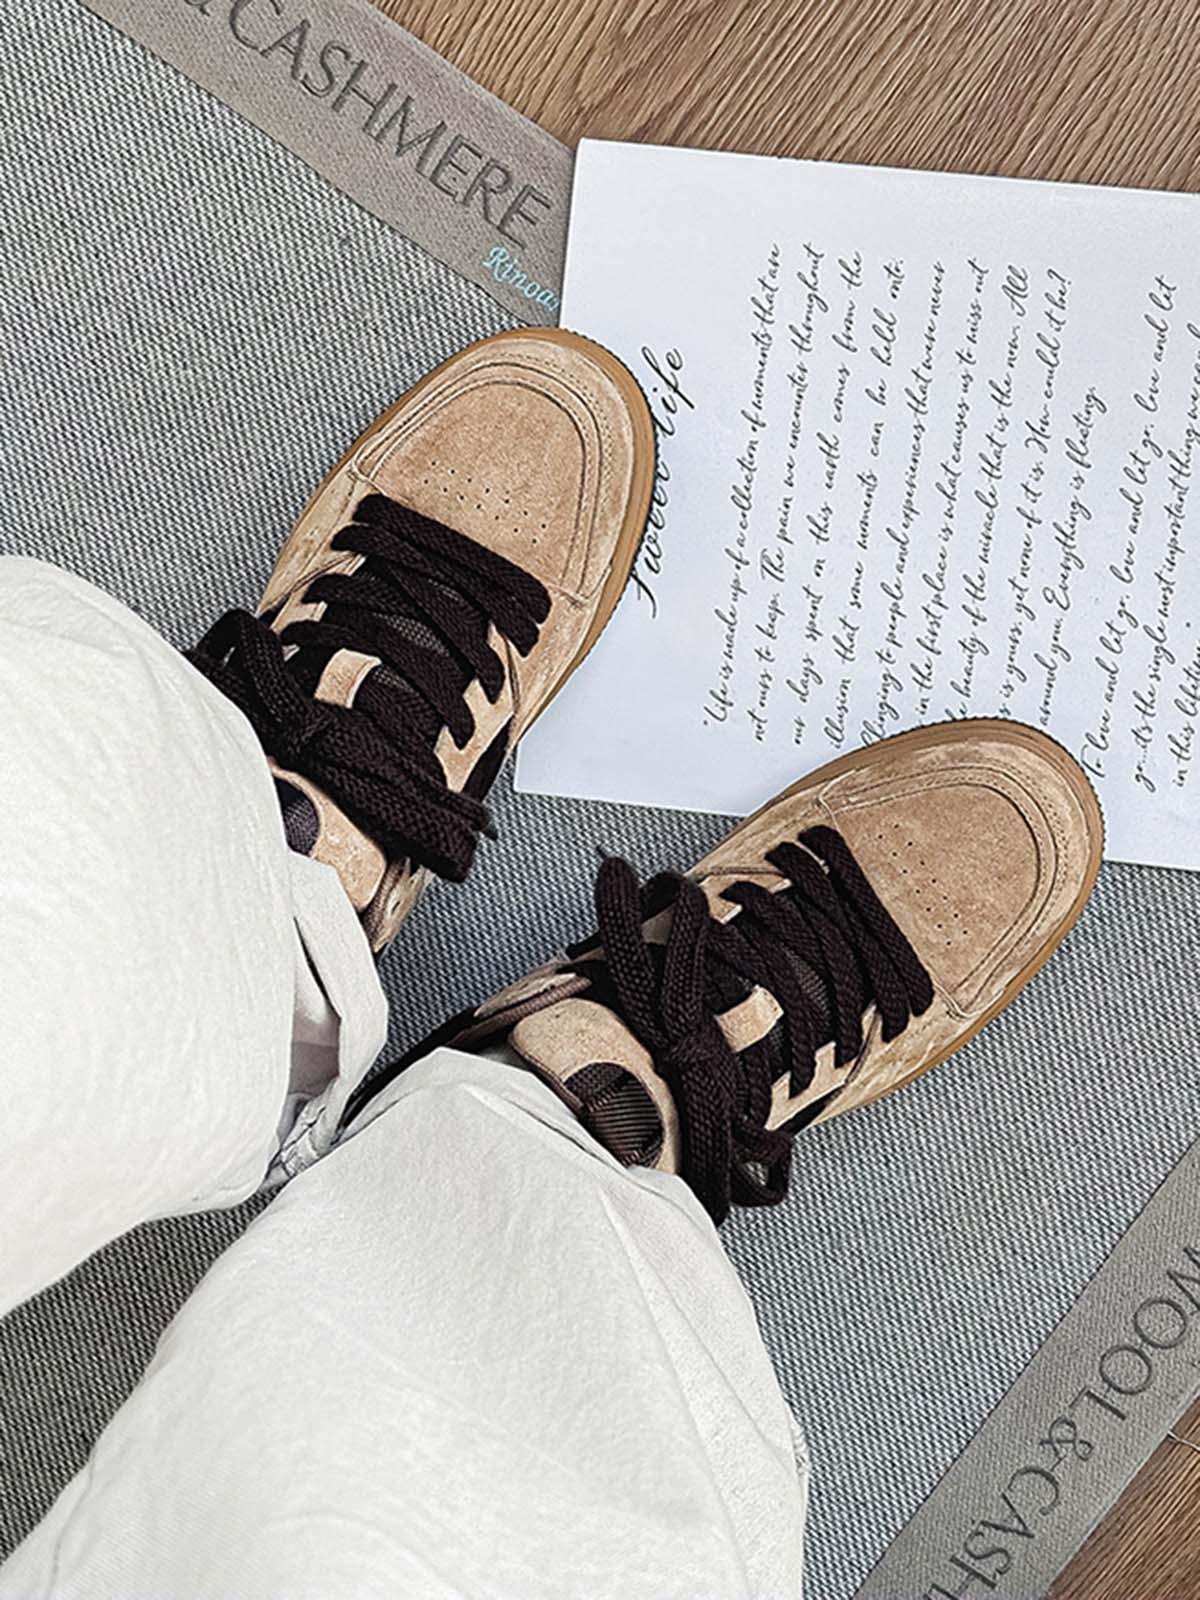 & CASHMERE
Rinoa
Sweet life
"Life is made up of a collection of moments that are
not ours to keep. The pain we encounter throughout
our days spent on this earth comes from the
illusion that some moments can be held onto.
Clinging to people and experiences that were never
in the first place is what causes us to miss out
beauty of the miracle that is the now. All
is yours, yet none of it is. How could it be?
around you. Everything is fleeting.
To love and let go, love and let go, love and let
go...it's the single most important thing we
in this lifetime
WOOL & CASH